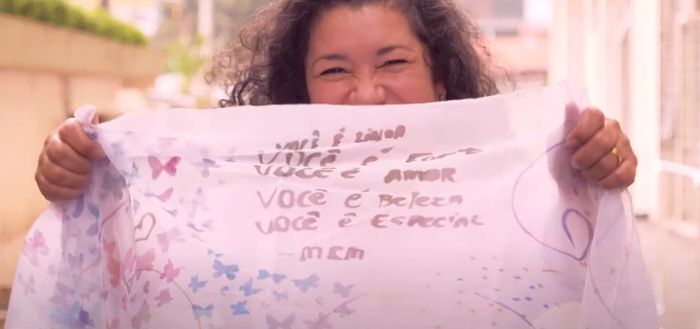 VOCÊ É LINDA
VOCÊ É FORTE
VOCÊ É AMOR
VOCÊ É BELEZA
VOCÊ É ESPECIAL